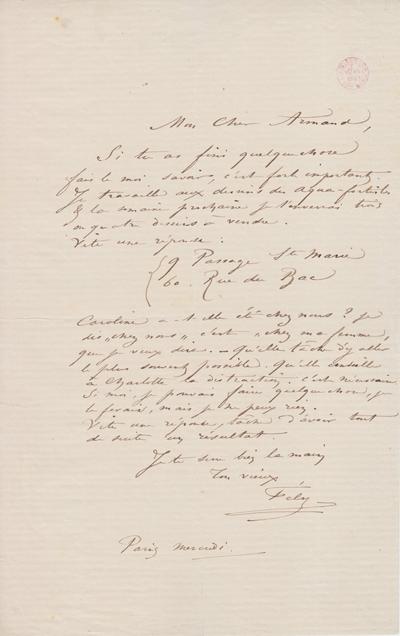 Mon Cher Armand,
Si tu as fini quelquechose
fais le moi savoir, c'est fort important.
Je travaille aux dessins des aqua-fortistes
& la semaine prochaine je t'enverrai trois
ou quatre dessins à vendre.
Vite une réponse:
9 Passage Ste Marie
60. Rue du Bac
Caroline a-t-elle été chez nous? je
dis „chez nous" c'est „chez ma femme„
que je veux dire. – qu'elle tâche d'y aller
le plus souvent possible, qu'elle conseille
à Charlotte la distraction. c'est nécessaire.
Si moi, je pouvais faire quelquechose, je
le ferais, mais je ne peux rien.
Vite une réponse, tâche d'avoir tout
de suite un résultat.
Je te serre bien la main
Ton vieux,
Fély
Paris mercredi.